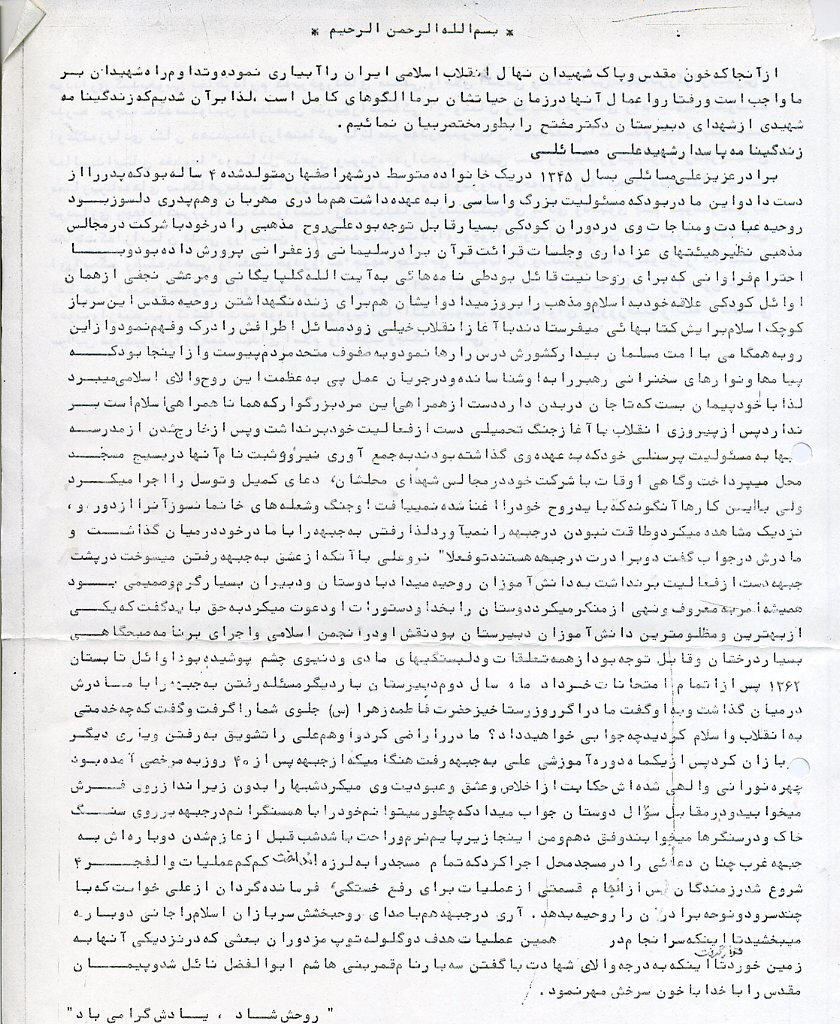 * بسم الله الرحمن الرحیم *
از آنجا که خون مقدس و پاک شهیدان نهال انقلاب اسلامی ایران را آبیاری نموده و تداوم راه شهیدان بر
ما واجب است و رفتار و اعمال آنها در زمان حیاتشان بر ما الگوهای کامل است ، لذا بر آن شدیم که زندگینامه
شهیدی از شهدای دبیرستان دکتر مفتح را بطور مختصر بیان نمائیم .
زندگینامه پاسدار شهید علی مسائلی
برادر عزیز علی مسائلی بسال ۱۳۴۵ در یک خانواده متوسط در شهر اصفهان متولد شده ۴ ساله بود که پدر را از
دست داد و این مادر بود که مسئولیت بزرگ و اساسی را به عهده داشت هم مادری مهربان و هم پدری دلسوز بود
روحیه عبادت و مناجات وی در دوران کودکی بسیار قابل توجه بود علی روح مذهبی را در خود با شرکت در مجالس
مذهبی نظیر هیئتهای عزاداری و جلسات قرائت قرآن برادر سلیمانی و زعفرانی پرورش داده بود و با
احترام فراوانی که برای روحانیت قائل بود طی نامه هائی به آیت الله گلپایگانی و مرعشی نجفی از همان
اوائل کودکی علاقه خود به اسلام و مذهب را بروز میداد و ایشان هم برای زنده نگهداشتن روحیه مقدس این سرباز
کوچک اسلام برایش کتابهائی میفرستادند با آغاز انقلاب خیلی زود مسائل اطرافش را درک و فهم نمود و از این
رو به همگامی با امت مسلمان بیدار کشورش درس را رها نمود و به صفوف متحد مردم پیوست و از اینجا بود که
پیامها و نوارهای سخنرانی رهبر را به او شناسانده و در جریان عمل پی به عظمت این روح والای اسلامی میبرد
لذا با خود پیمان بست که تا جان در بدن دارد دست از همراهی این مرد بزرگوار که همانا همراهی اسلام است بر
ندارد پس از پیروزی انقلاب با آغاز جنگ تحمیلی دست از فعالیت خود برنداشت و پس از خارج شدن از مدرسه
به مسئولیت پرسنلی خود که به عهده وی گذاشته بودند به جمع آوری نیرو و ثبت نام آنها در بسیج مسجد
محل میپرداخت و گاهی اوقات با شرکت خود در مجالس شهدای محلشان، دعای کمیل و توسل را اجرا میکرد
ولی با این کارها آنگونه که باید روح خود را اغنا شده نمییافت ! و جنگ و شعله های خانمانسوز آنرا از دور و ،
نزدیک مشاهده میکرد و طاقت نبودن در جبهه را نمیآورد لذا رفتن به جبهه را با مادر خود در میان گذاشت و
مادرش در جواب گفت دو برادرت در جبهه هستند تو فعلا" نرو علی با آنکه از عشق به جبهه رفتن میسوخت در پشت
جبهه دست از فعالیت برنداشت به دانش آموزان روحیه میداد با دوستان و دبیران بسیار گرم و صمیمی بود
همیشه امر به معروف و نهی از منکر میکرد دوستان را بخدا و دستورات او دعوت میکرد به حق باید گفت که یکی
از بهترین و مظلومترین دانش آموزان دبیرستان بود نقش او در انجمن اسلامی و اجرای برنامه صبحگاهی
بسیار درخشان و قابل توجه بود از همه تعلقات و دلبستگیهای مادی و دنیوی چشم پوشیده بود اوائل تابستان
۱۳۶۲ پس از اتمام امتحانات خرداد ماه سال دوم دبیرستان بار دیگر مسئله رفتن به جبهه را با مادرش
در میان گذاشت و به او گفت مادر اگر روز رستاخیز حضرت فاطمه زهرا (س) جلوی شما را گرفت و گفت که چه خدمتی
به انقلاب و اسلام کردید چه جوابی خواهید داد ؟ مادر را راضی کرد و او هم علی را تشویق به رفتن و یاری دیگر
بازان کرد پس از یکماه دوره آموزشی علی به جبهه رفت هنگامیکه از جبهه پس از ۴۰ روز به مرخصی آمده بود
چهره نورانی و الهی شده اش حکایت از اخلاص و عشق و عبودیت وی میکرد شبها را بدون زیرانداز روی فرش
میخوابید و در مقابل سؤال دوستان جواب میداد که چطور میتوانم خود را با همسنگرانم در جبهه بر روی سنگ
خاک و در سنگرها میخوابند وفق دهم و من اینجا زیر پایم نرم و راحت باشد شب قبل از عازم شدن دوباره اش به
جبهه غرب چنان دعائی را در مسجد محل اجرا کرد که تمام مسجد را به لرزه انداخت کم کم عملیات والفجر ۴
شروع شد رزمندگان پس از انجام قسمتی از عملیات برای رفع خستگی، فرمانده گردان از علی خواست که با
چند سرود و نوحه برادران را روحیه بدهد . آری در جبهه هم با صدای روحبخشش سربازان اسلام را جانی دوباره
میبخشید تا اینکه سرانجام در همین عملیات هدف دو گلوله توپ مزدوران بعثی که در نزدیکی آنها به
قرار گرفت
زمین خورد تا اینکه به درجه والای شهادت با گفتن سه بار نام قمر بنی هاشم ابوالفضل نائل شد و پیمان
مقدس را با خدا با خون سرخش مهر نمود .
" روحش شاد ، یادش گرامی باد "